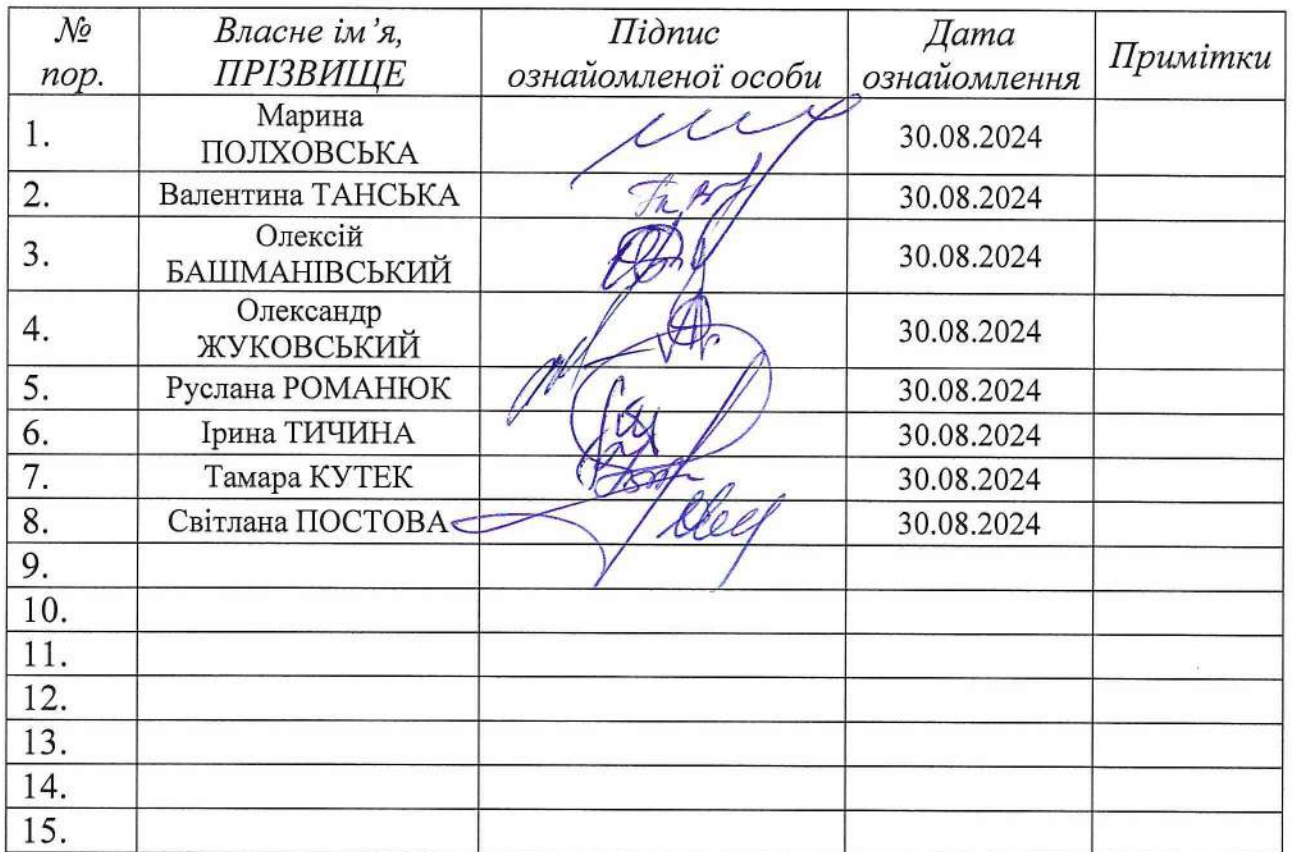 № пор. Власне ім’я, ПРІЗВИЩЕ Підпис ознайомленої особи Дата ознайомлення Примітки
1. Марина ПОЛХОВСЬКА 30.08.2024
2. Валентина ТАНСЬКА 30.08.2024
3. Олексій БАШМАНІВСЬКИЙ 30.08.2024
4. Олександр ЖУКОВСЬКИЙ 30.08.2024
5. Руслана РОМАНЮК 30.08.2024
6. Ірина ТИЧИНА 30.08.2024
7. Тамара КУТЕК 30.08.2024
8. Світлана ПОСТОВА 30.08.2024
9.
10.
11.
12.
13.
14.
15.